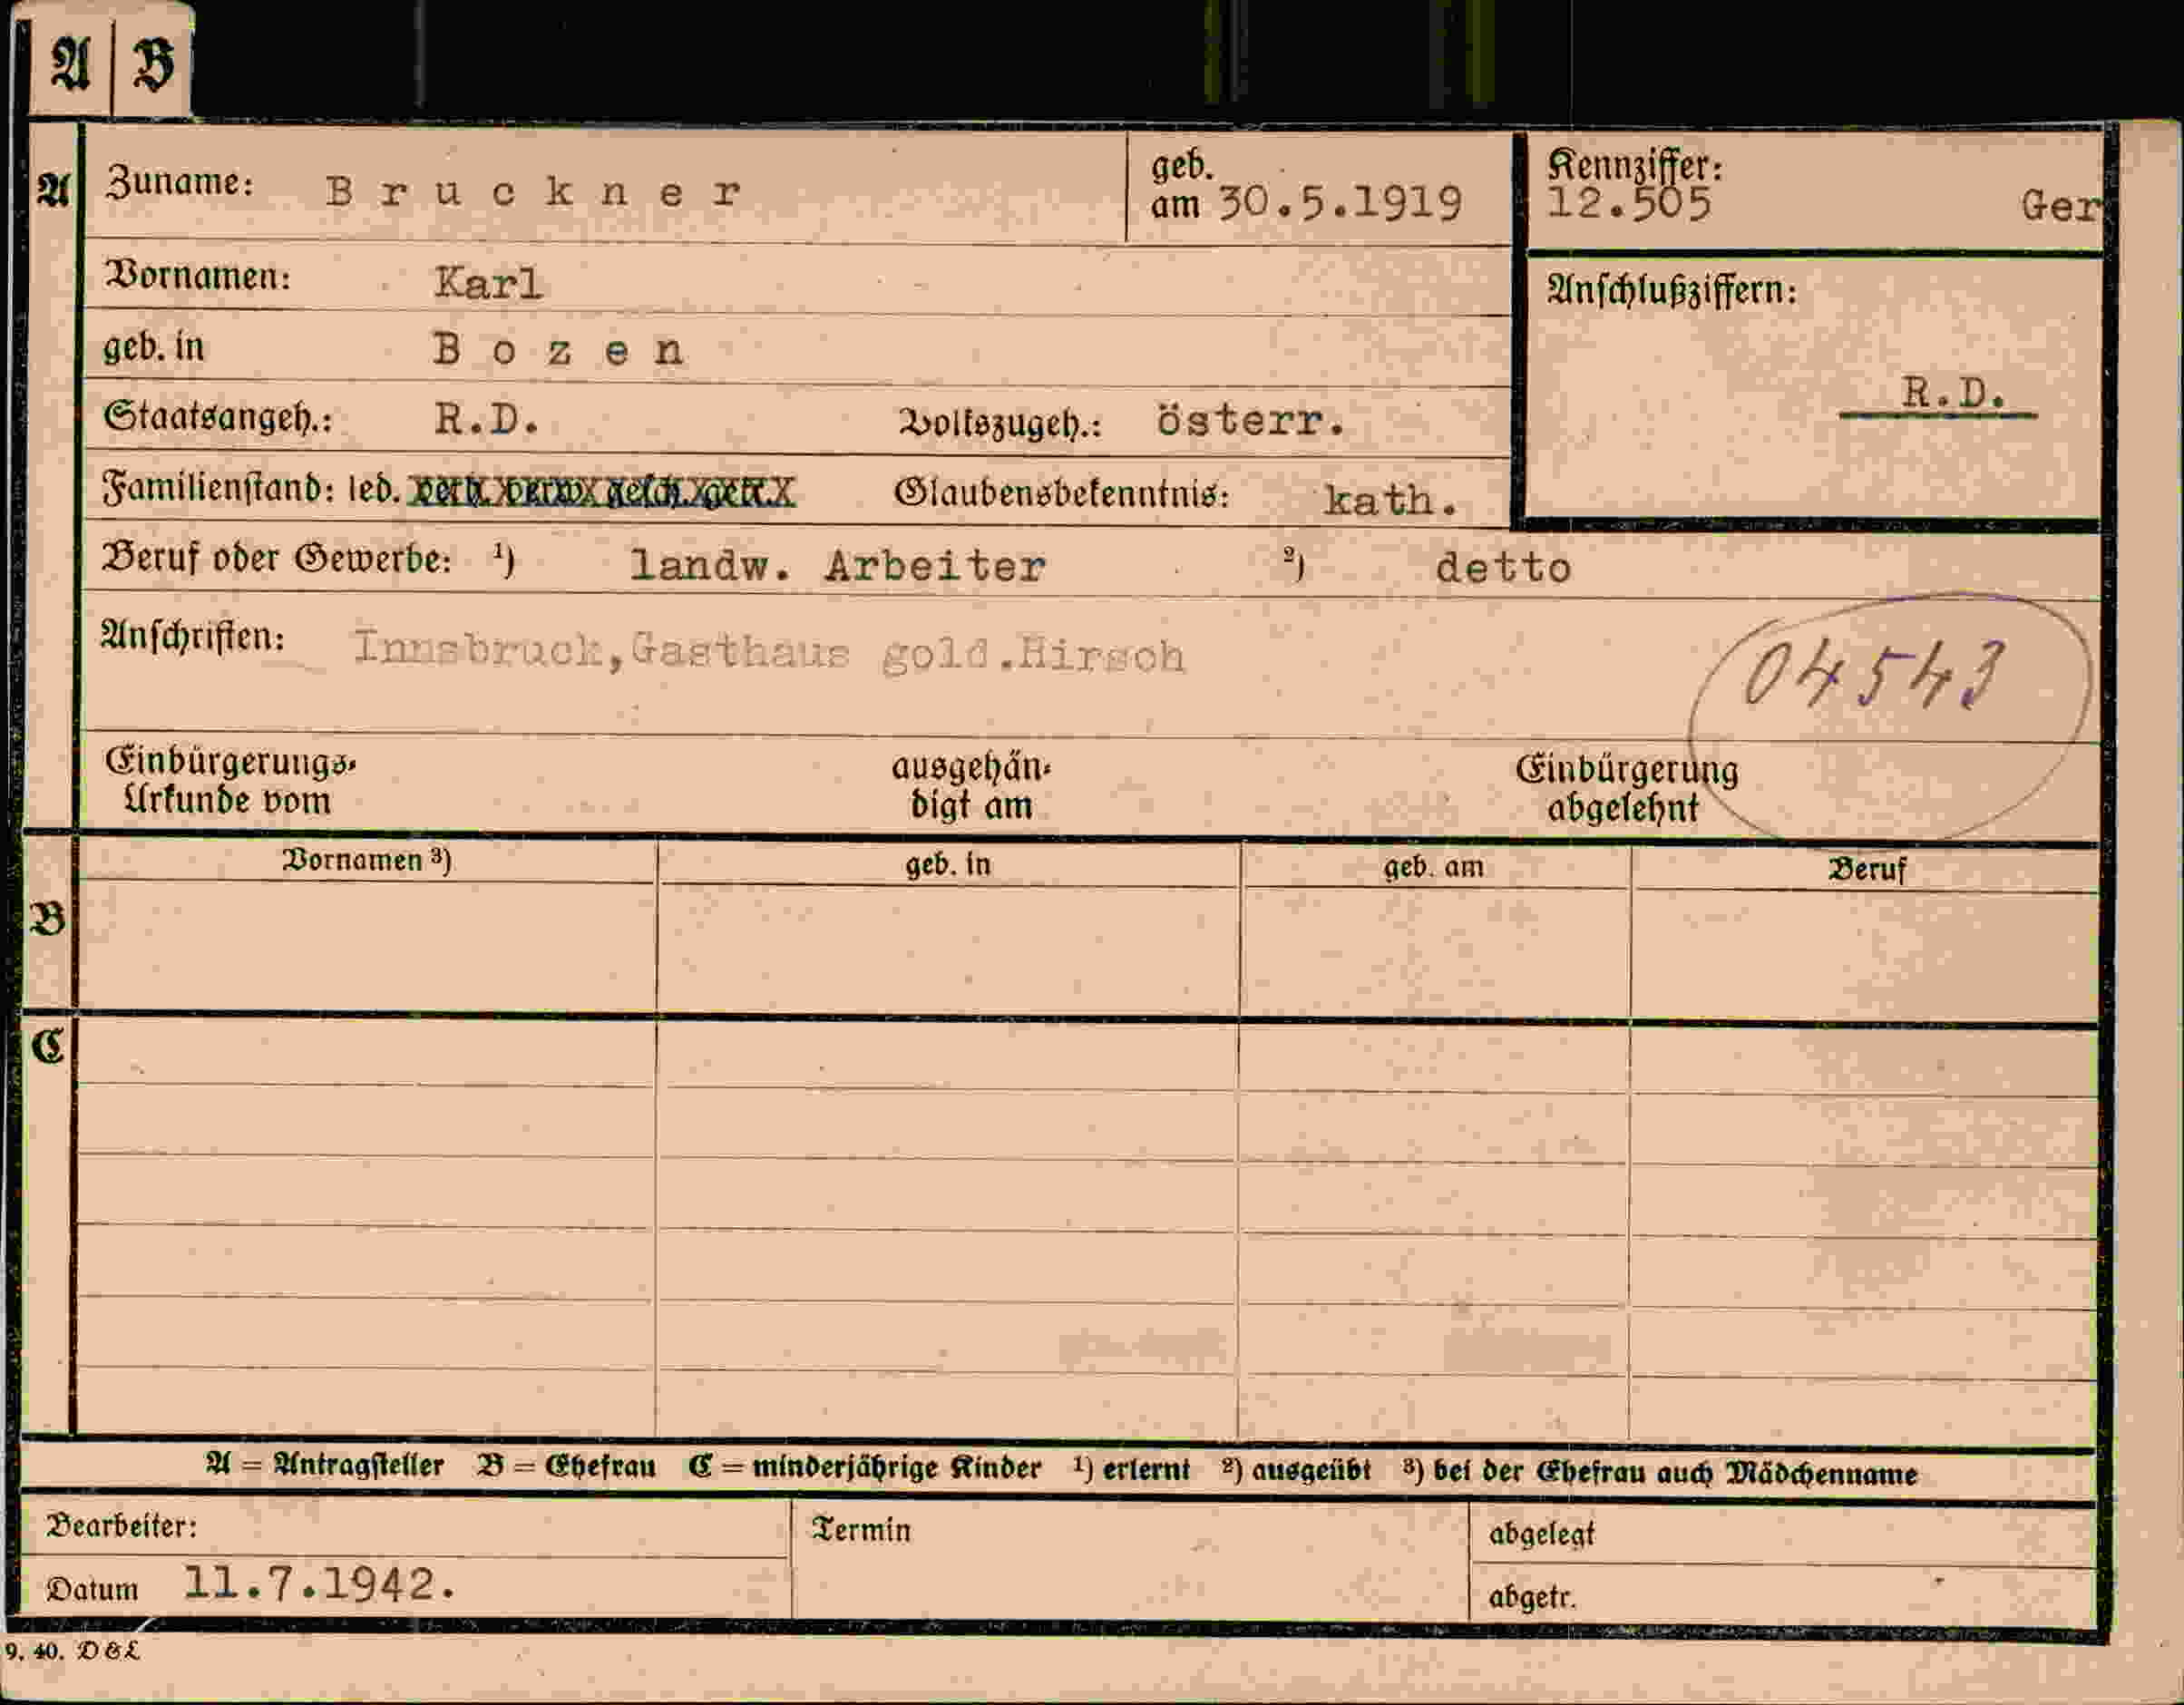 A B
A Zuname: Bruckner geb. am 30.5.1919 Kennziffer: 12.505 Ger
Vornamen: Karl
Anschlußziffern:
geb. in Bozen
R.D.
Staatsangeh.: R.D. Volkszugeh.: österr.
Familienstand: led. verh. verw. gesch. getr. Glaubensbekenntnis: kath.
Beruf oder Gewerbe: ¹) landw. Arbeiter ²) detto
Anschriften: Innsbruck,Gasthaus gold.Hirsch
04543
Einbürgerungs-
Urkunde vom
ausgehän-
digt am
Einbürgerung
abgelehnt
B Vornamen ³) geb. in geb. am Beruf
C
A = Antragsteller B = Ehefrau C = minderjährige Kinder ¹) erlernt ²) ausgeübt ³) bei der Ehefrau auch Mädchenname
Bearbeiter: Termin abgelegt
Datum 11.7.1942. abgetr.
9. 40. D&L